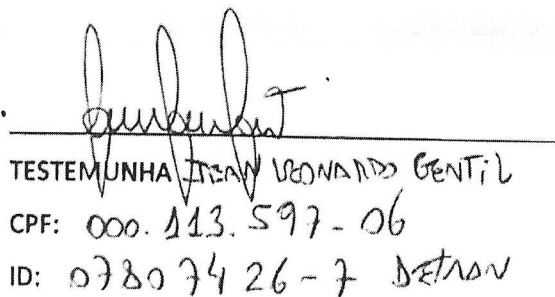 TESTEMUNHA LEONARDO GENTIL
CPF: 000.113.597-06
ID: 07807426-7 DETRAN